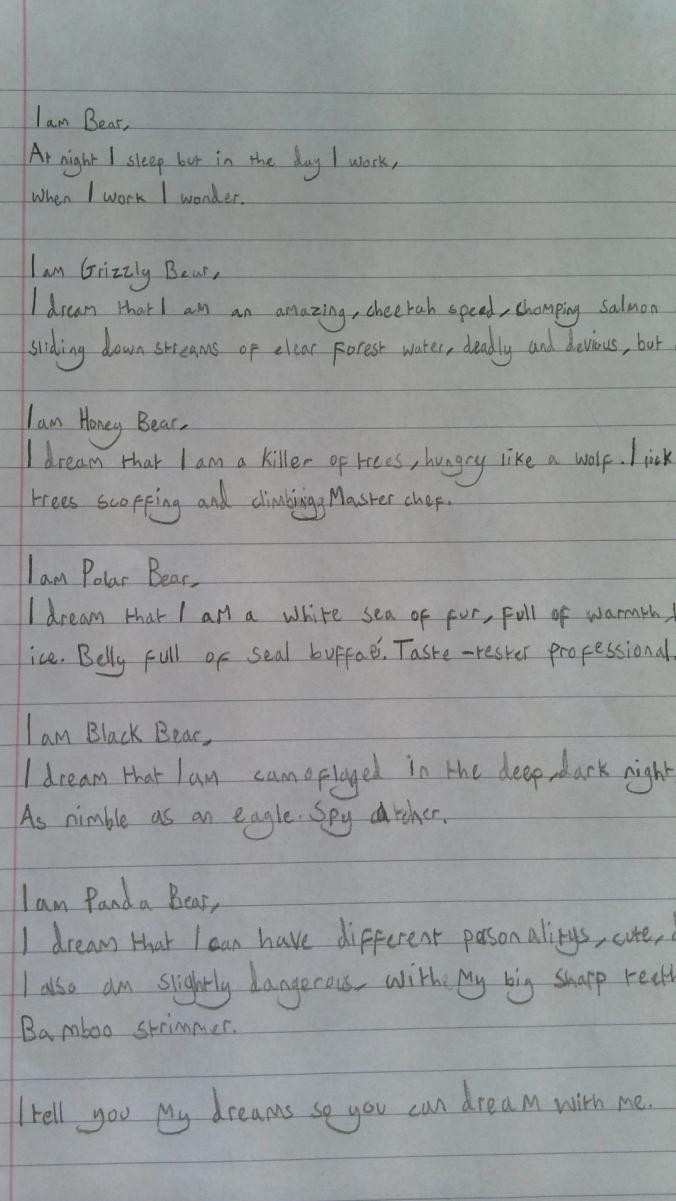 I am Bear,
At night I sleep but in the day I work,
When I work I wonder.
I am Grizzly Bear,
I dream that I am an amazing, cheetah speed, chomping salmon
sliding down streams of clear forest water, deadly and devious, but
I am Honey Bear,
I dream that I am a killer of trees, hungry like a wolf. I
trees scoffing and climbing, Master chef.
I am Polar Bear,
I dream that I am a white sea of fur, full of warmth,
ice. Belly full of seal buffaé. Taste-tester professional.
I am Black Bear,
I dream that I am camoflaged in the deep, dark night
As nimble as an eagle. Spy catcher.
I am Panda Bear,
I dream that I can have different personalitys, cute,
I also am slightly dangerous, withe my big sharp teeth
Bamboo strimmer.
I tell you my dreams so you can dream with me.